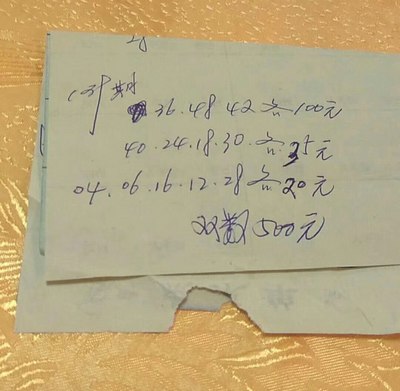 28
139期
36.48 42各100元
40.24.18.30.各.35元
04.06.16.12.28各20元
双数500元